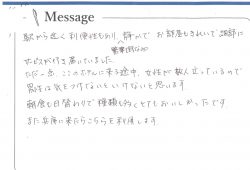 Message
駅から近く利便性もあり、静かで お部屋もきれいで 細部に
警察官など
サービスが行き届いていました。
ただ一点、ここのホテルに来る途中、女性が数人立っているので
男性は気をつけないといけないと思います
朝食も日替わりで種類も多くとてもおいしかったです
また兵庫に来たらこちらを利用します